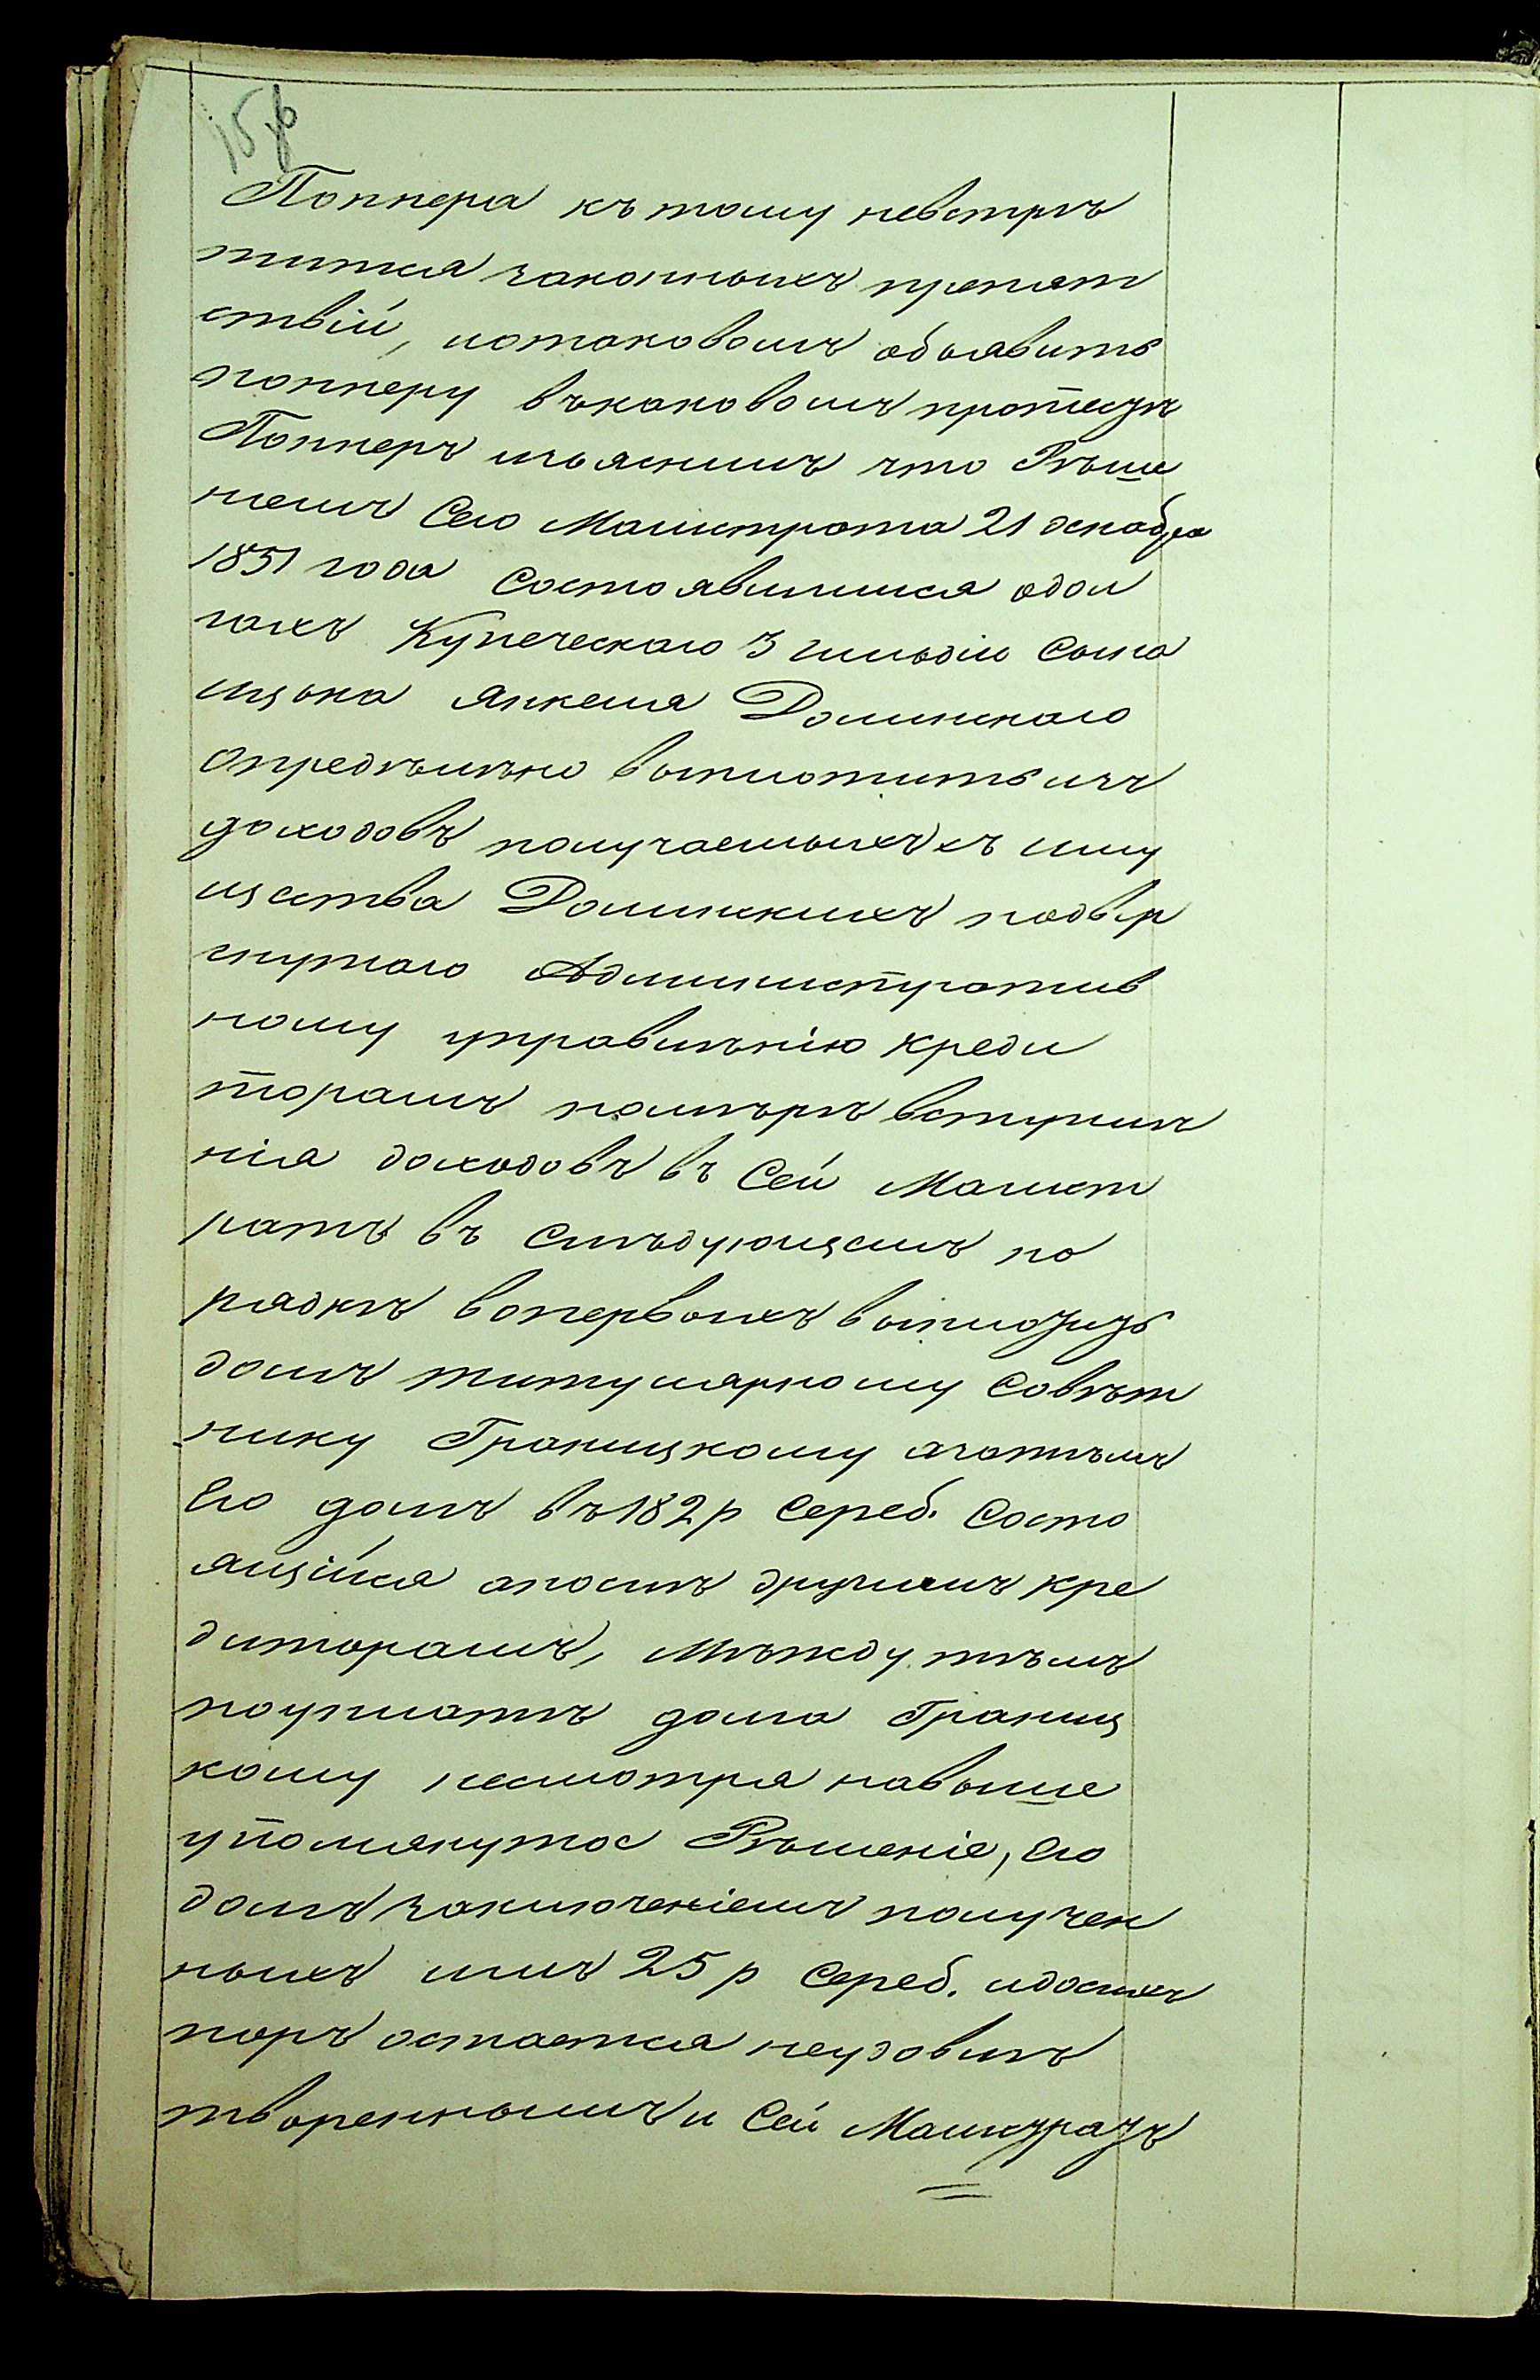 Поннера къ тому невстрѣ
тится законныхъ препят
ствій, потаковомъ объявить
поннеру въкаковомъ протезѣ
Поннеръ изъяснилъ что Рѣше
ніемъ Сего Магистрата 21 декабря
1851 года состоявшимся одол
гахъ Купеческаго 3 гильдіи Сына
ицька Янкеля Долинскаго
Опредѣлѣно выплотить изъ
доходовъ получаемыхъ съ иму
щества Долинскихъ подвер
гнутаго Административ
ному управлѣнію креди
торамъ помѣрѣ вступлѣ
нія доходовъ въ Сей Магист
ратъ въ Слѣдующемъ по
рядкѣ вопервыхъ выплотить
долгъ титулярному Совѣт
нику Границкому азатѣмъ
Его долгъ въ 182 р Сереб. Состо
ящійся апослѣ другимъ кре
диторамъ, Мѣжду тѣмъ
поуплатѣ долга Границ
кому несмотря навыше
упомянутое Рѣшеніе, Его
долгъ заключеніемъ получен
ныхъ имъ 25 р Сереб. идосихъ
поръ остается неудовлѣ
твореннымъ и Сей Магистратъ